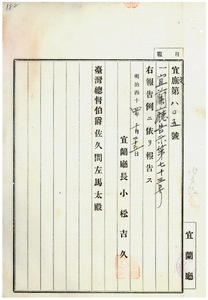 宜庶第八〇五號
一宜蘭廳告示第七十三號
右報告例ニ依リ報告ス
明治四十四年十月二十五日
宜蘭廳長 小松吉久
臺灣總督伯爵佐久間左馬太殿
宜蘭廳